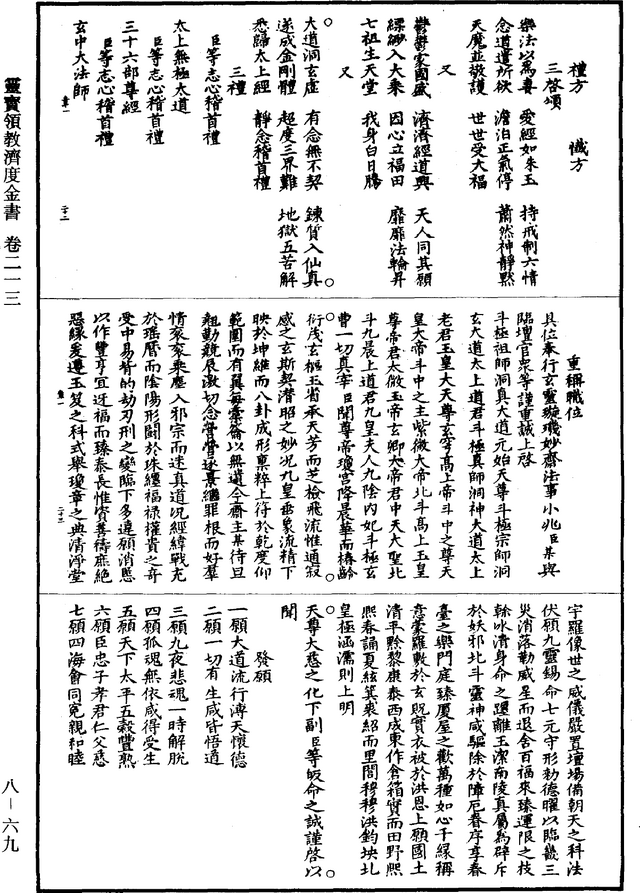 靈寶領教濟度金書 卷二一三
八－六九
禮方 懺方
三啓頌
樂法以爲妻 愛經如朱玉 持戒制六情
念道遣所欲 澹泊正氣停 蕭然神靜默
天魔並敬護 世世受大福
又
鬱鬱家國盛 濟濟經道興 天人同其願
縹緲入大乘 因心立福田 靡靡法輪昇
七祖生天堂 我身白日騰
又
大道洞玄虛 有念無不契 鍊質入仙真
遂成金剛體 超度三界難 地獄五苦解
悉歸太上經 靜念稽首禮
三禮
臣等志心稽首禮
太上無極太道
臣等志心稽首禮
三十六部尊經
臣等志心稽首禮
玄中大法師
重稱職位
具位奉行玄靈璇璣妙齋法事小兆臣某與
臨壇官衆等謹重誠上啓
斗極祖師洞真大道元始天尊斗極宗師洞
玄大道太上道君斗極真師洞神大道太上
老君玉皇大天尊玄穹高上帝斗中之尊天
皇大帝斗中之主紫微大帝北斗高上玉皇
尊帝君太微玉帝玄卿大帝君中天大聖北
斗九晨上道君九皇夫人九陰內妃斗極玄
曹一切真宰臣聞尊帝瓊宮降晨華而椿齡
衍茂玄樞玉省承天芳而芝檢飛流惟通寂
感之玄斯契潛昭之妙况九皇垂象流精下
映於坤維而八卦成形稟粹上符於乾度仰
範圍而有翼每橐籥以無遺今齋主某待旦
麤勤競辰激切念營營逐景繼罪根而好羣
情衮衮乘塵入邪宗而迷真道况經緯戰克
於璿曆而陰陽形鬬於珠纏福祿權貴之奇
受中易背的劫刃刑之變臨下多違願消慝
以作豐亨宜迓福而臻泰長惟資善禱庶絕
惡緣爰遵玉笈之科式舉瓊章之典清淨堂
宇羅像世之威儀嚴置壇場備朝天之科法
伏願九靈錫命七元守形勑德曜以臨畿三
災消落勒威星而退舍百福來臻運限之枝
餘水清身命之躔離玉潔南陵真屬爲辟斥
於妖邪北斗靈神咸驅除於障厄眷序享春
臺之樂門庭臻厦屋之歡萬種如心千緣稱
意蒙羅敷於玄貺實衣被於洪恩上願國土
清平黔黎康泰西成東作倉箱實而田野熙
熙春誦夏絃箕裘紹而里閭穆穆洪鈞坱北
皇極涵濡則上明
天尊大慈之化下副臣等皈命之誠謹啓以
聞
發願
一願大道流行溥天懷德
二願一切有生咸皆悟道
三願九夜悲魂一時解脫
四願孤魂無依咸得受生
五願天下太平五穀豐熟
六願臣忠子孝君仁父慈
七願四海會同寃親和睦